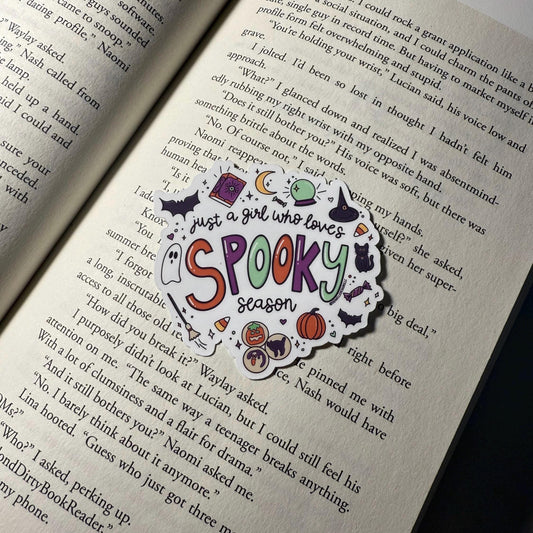 software.
guys sounded
came to snoop."
dating profile," Naomi
"Waylay asked.
thing," Nash called from
lamp.
held up a hand.
did I could and
sure your
conceded.
with
a social situation, and I could rock a grant application like a b
single guy in record time. But having to market myself i
profile form felt overwhelming and stupid.
"You're holding your wrist," Lucian said, his voice low and
grave.
I jolted. I'd been so lost in thought I hadn't felt him
approach.
"What?" I glanced down and realized I was absentmind-
edly rubbing my right wrist with my opposite hand.
"Does it still bother you?" His voice was soft, but there was
something brittle about the words.
"No. Of course not,"
Naomi reappear
proving tha
human he
"Is it
I add
Kno
"You
summer bre
"I forgot
a long, inscrutable
access to all those old
"How did you break it?" Waylay asked.
I purposely didn't look at Lucian, but I could still feel his
attention on me. "The same way a teenager breaks anything.
With a lot of clumsiness and a flair for drama."
"And it still bothers you?" Naomi asked me.
"No. I barely think about it anymore."
Lina hooted. "Guess who just got three mor
OMs?"
"Who?" I asked, perking up.
ondDirtyBookReader,"
my phone.
my hands.
urself?" she asked,
given her super-
big deal,"
right before
pinned me with
ce, Nash would have
just a girl who loves
SPOOKY
season